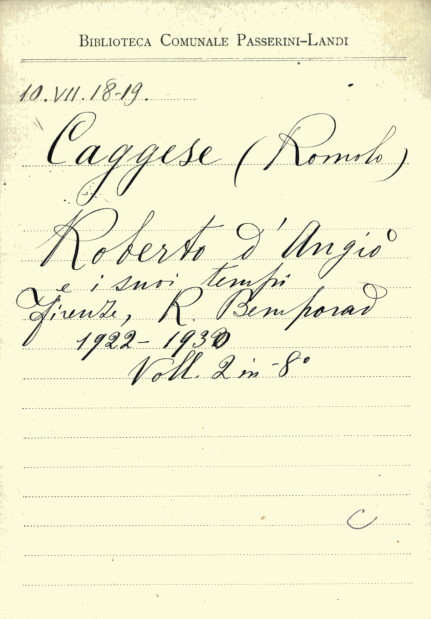 BIBLIOTECA COMUNALE PASSERINI-LANDI
10.VII.18-19.
Caggese (Romolo)
Roberto d'Angiò
e i suoi tempi
Firenze, R. Bemporad
1922-1930
Voll. 2 in-8°
C